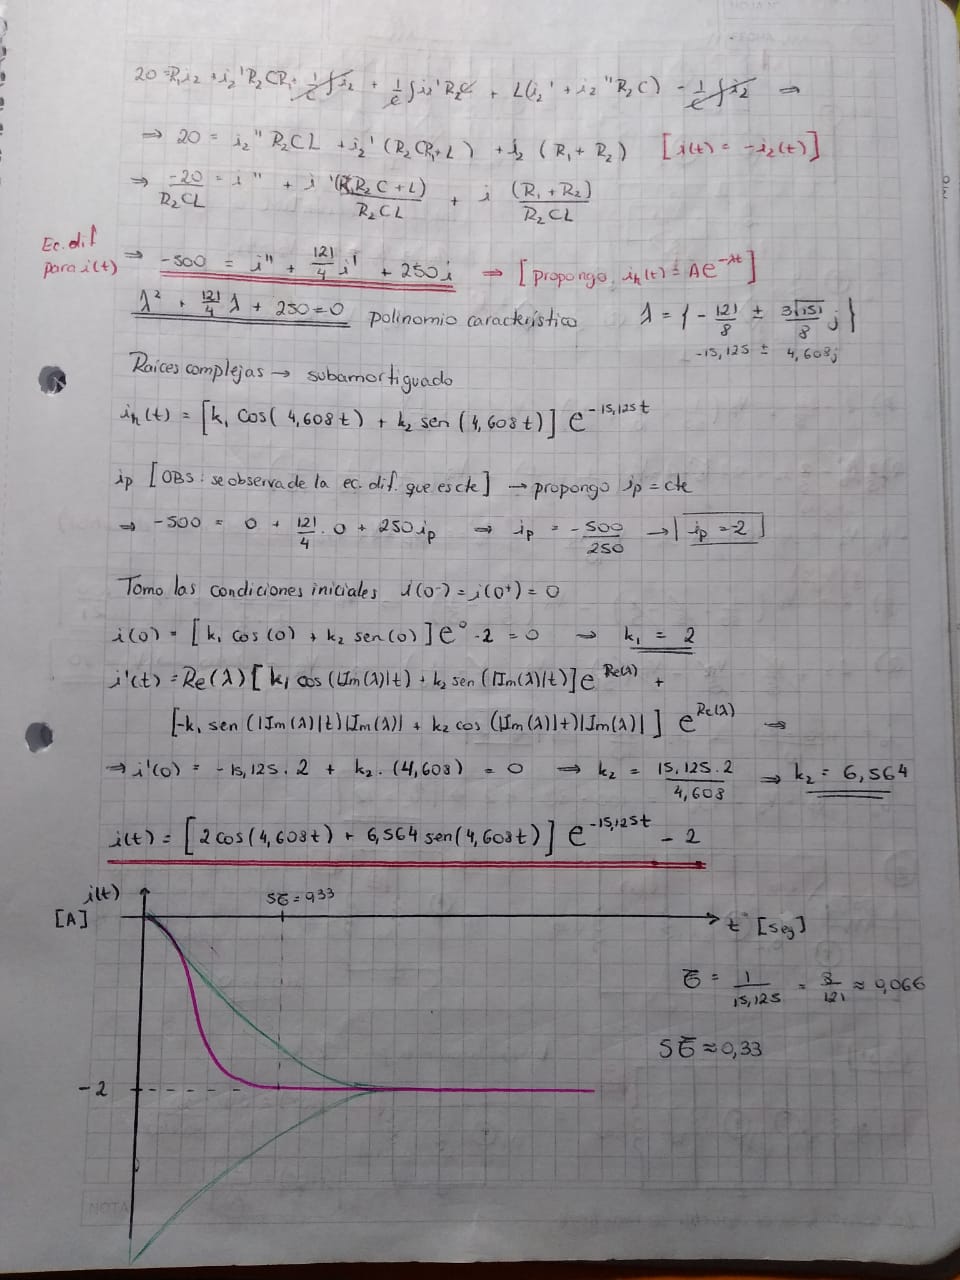 20 = R₁i₂ + i₂' R₂CR₁ + 1/C ∫i₂ + 1/C ∫i₂' R₂C + L(i₂' + i₂'' R₂C) - 1/C ∫i₂ ⇒
⇒ 20 = i₂'' R₂CL + i₂' (R₂CR₁+L) + i₂ (R₁ + R₂) [i(t) = -i₂(t)]
⇒ -20/R₂CL = i'' + i' (R₁R₂C + L)/R₂CL + i (R₁ + R₂)/R₂CL
Ec. dif para i(t) ⇒ -500 = i'' + 121/4 i' + 250i ⇒ [propongo iₕ(t) = Ae^-λt]
λ² + 121/4 λ + 250 = 0 polinomio característico λ = { -121/8 ± 3√151/8 j }
-15,125 ± 4,608j
Raíces complejas → subamortiguado
iₕ(t) = [k₁ cos(4,608t) + k₂ sen(4,608t)] e^-15,125t
ip [OBS: se observa de la ec. dif. que es cte] → propongo ip = cte
⇒ -500 = 0 + 121/4 . 0 + 250ip ⇒ ip = -500/250 → ip = -2
Tomo las condiciones iniciales i(0⁻) = i(0⁺) = 0
i(0) = [k₁ cos(0) + k₂ sen(0)] e⁰ - 2 = 0 → k₁ = 2
i'(t) = Re(λ) [k₁ cos(|Im(λ)|t) + k₂ sen(|Im(λ)|t)] e^Re(λ) +
[-k₁ sen(|Im(λ)|t)|Im(λ)| + k₂ cos(|Im(λ)|t)|Im(λ)|] e^Re(λ) ⇒
⇒ i'(0) = -15,125 . 2 + k₂ . (4,608) = 0 ⇒ k₂ = 15,125 . 2/4,608 ⇒ k₂ = 6,564
i(t) = [2 cos(4,608t) + 6,564 sen(4,608t)] e^-15,125t - 2
i(t)
[A]
5τ = 0,33
t [seg]
τ = 1/15,125 = 8/121 ≈ 0,066
5τ ≈ 0,33
-2
NOTA